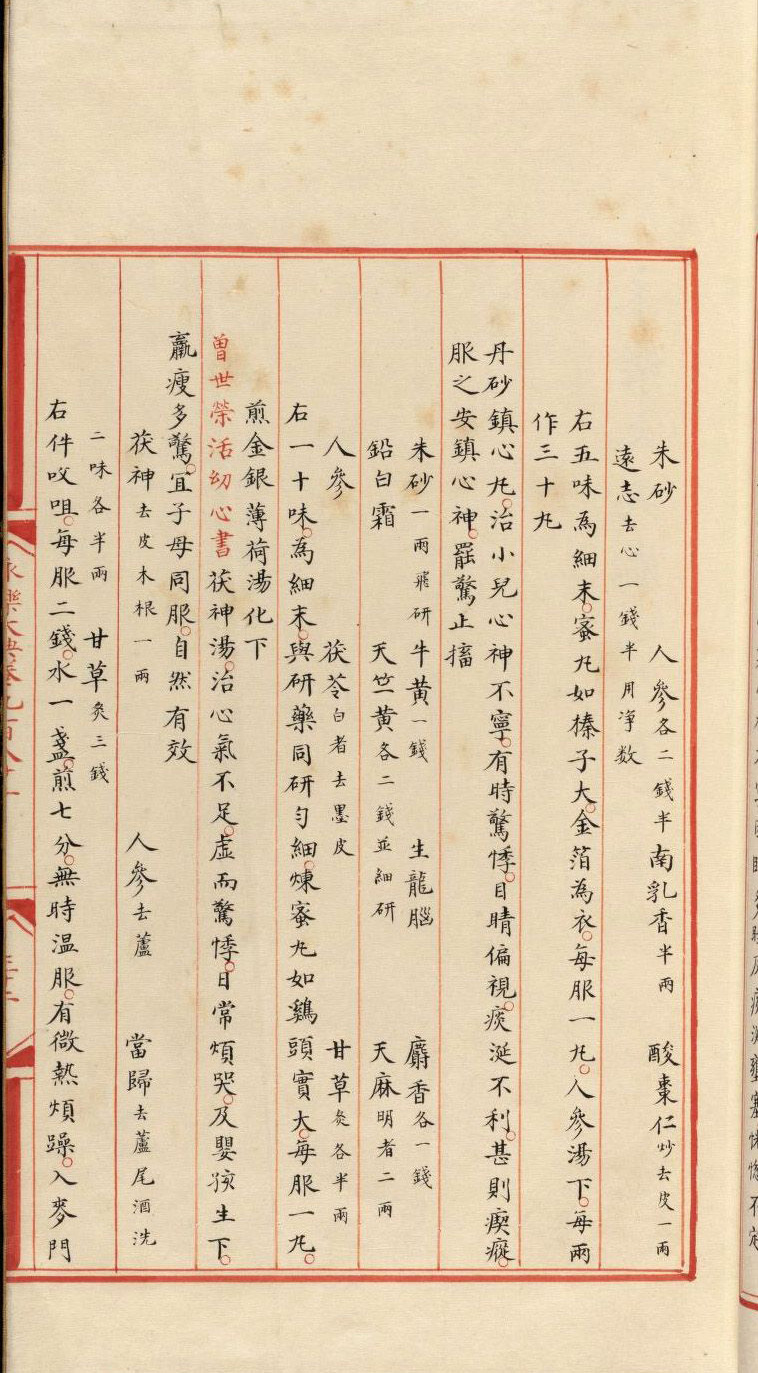 朱砂 人參各二錢半 南乳香半兩 酸棗仁炒去皮一兩
遠志去心一錢半用净数
右五味為細末蜜丸如榛子大金箔為衣每服一丸人參湯下每兩
作三十丸
丹砂鎮心丸治小兒心神不寧有時驚悸目睛偏視痰涎不利甚則瘈瘲
服之安鎮心神罷驚止搐
朱砂一兩飛研 牛黄一錢 生龍腦 麝香各一錢
鉛白霜 天竺黄各二錢並細研 天麻明者二兩
人參 茯苓白者去墨皮 甘草炙各半兩
右一十味為細末與研藥同研匀細煉蜜丸如鷄頭實大每服一丸
煎金銀薄荷湯化下
曾世榮活幼心書茯神湯治心氣不足虚而驚悸日常煩哭及嬰孩生下
羸瘦多驚宜子母同服自然有效
茯神去皮木根一兩 人參去蘆 當歸去蘆尾酒洗
二味各半兩 甘草炙三錢
右件㕮咀每服二錢水一盞煎七分無時温服有微熱煩躁入麥門
永樂大典卷九百八十一